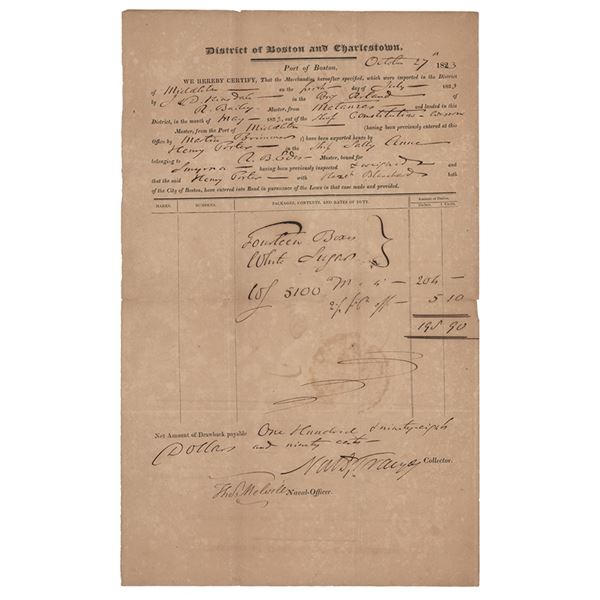 District of Boston and Charlestown.
Port of Boston, October 27th 1823
WE HEREBY CERTIFY, That the Merchandize hereafter specified, which were imported in the District
of Middleton on the first day of July 1823
by J. D. Kinsdale in the Brig of
R. Bailey Master, from Matanzas and landed in this
District, in the month of May 1823, out of the Ship Constitution
Master, from the Port of Middleton (having been previously entered at this
Office by Martin Brimmer) have been exported hence by
Henry Porter in the Ship Sally Anne
belonging to R. B. Edes Master, bound for
Smyrna having been previously inspected & weighed and
that the said Henry Porter with Blanchard both
of the City of Boston, have entered into Bond in pursuance of the Laws in that case made and provided.
MARKS. NUMBERS. PACKAGES, CONTENTS, AND RATES OF DUTY. Amount of Duties.
Dollars. Cents.
Fourteen Boxes
White Sugars
5100 204 -
off 5 10
198 90
Net Amount of Drawback payable One Hundred & ninety eight
Dollars and ninety cents
Collector.
Thos Melvill Naval-Officer.